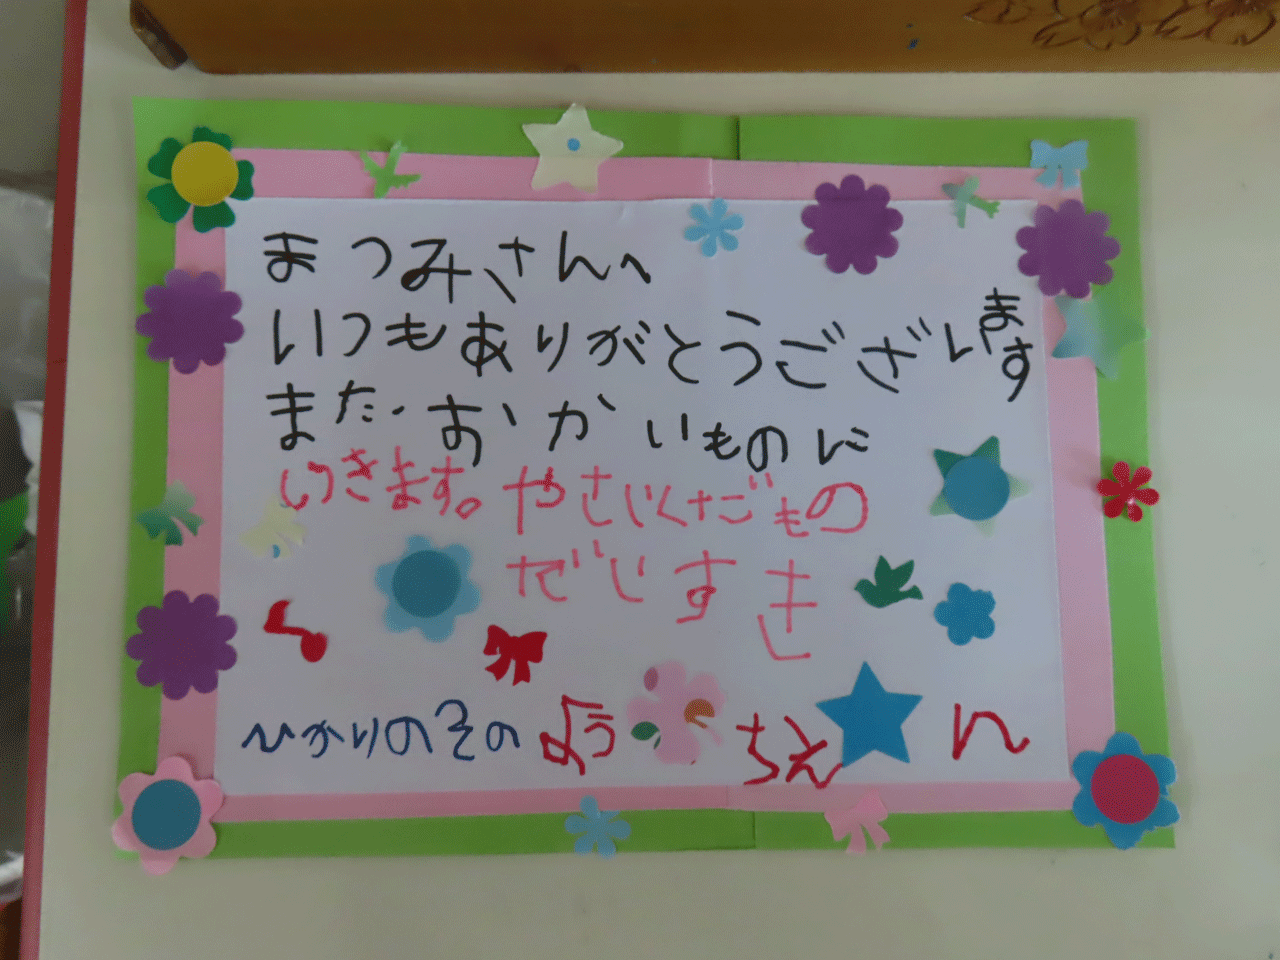 まつみさんへ
いつもありがとうございます
また おかいものに
いきます。やさいくだもの
だいすき
ひかりのその ようちえん